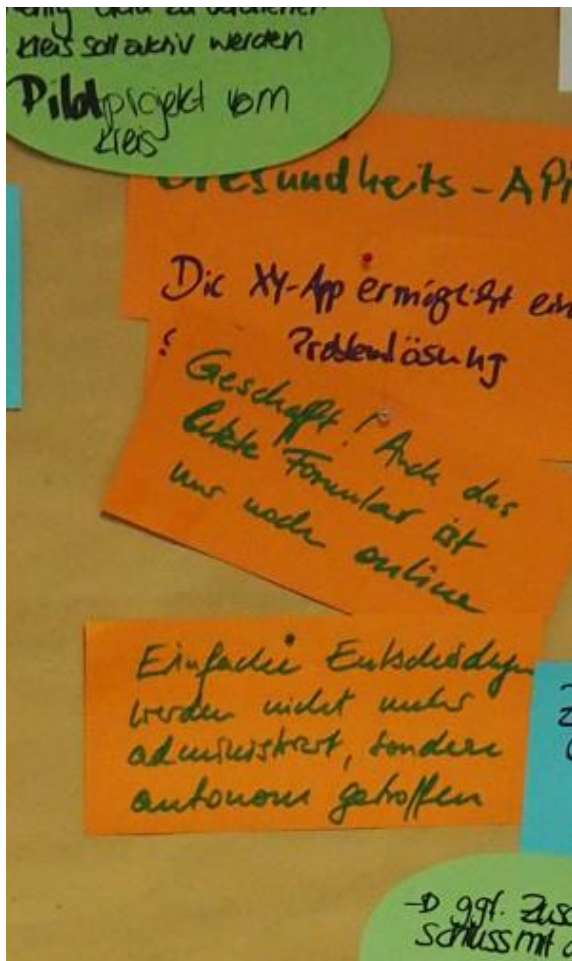 Kreis soll aktiv werden
Pilotprojekt vom
Kreis
Gesundheits-APP
Die XY-App ermöglicht ein
Problemlösung
Geschafft! Auch das
letzte Formular ist
nur noch online
Einfache Entscheidungen
werden nicht mehr
administriert, sondern
autonom getroffen
→ ggf. Zusa
schluss mit